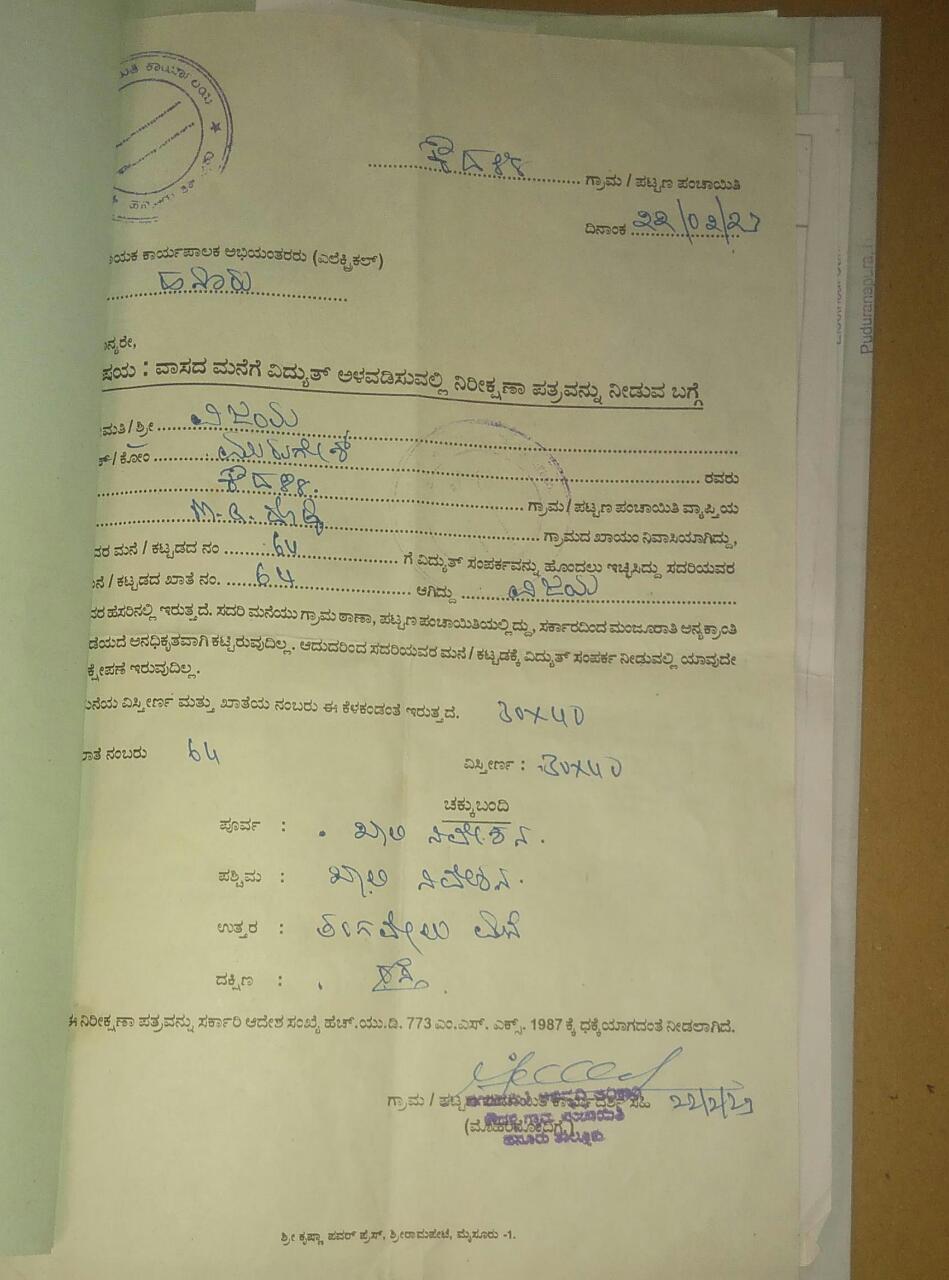 ಕೌದಳ್ಳಿ ಗ್ರಾಮ / ಪಟ್ಟಣ ಪಂಚಾಯಿತಿ
ದಿನಾಂಕ 22/02/23
ಯಕ ಕಾರ್ಯಪಾಲಕ ಅಭಿಯಂತರರು (ಎಲೆಕ್ಟ್ರಿಕಲ್)
ಹನೂರು
ನ್ಯರೇ,
ಷಯ : ವಾಸದ ಮನೆಗೆ ವಿದ್ಯುತ್ ಅಳವಡಿಸುವಲ್ಲಿ ನಿರೀಕ್ಷಣಾ ಪತ್ರವನ್ನು ನೀಡುವ ಬಗ್ಗೆ
ಮತಿ / ಶ್ರೀ ವಿಜಯ
/ ಕೋಂ ಮುರುಗೇಶ್ ರವರು
ಕೌದಳ್ಳಿ ಗ್ರಾಮ / ಪಟ್ಟಣ ಪಂಚಾಯಿತಿ ವ್ಯಾಪ್ತಿಯ
ಗ್ರಾಮದ ಖಾಯಂ ನಿವಾಸಿಯಾಗಿದ್ದು,
ವರ ಮನೆ / ಕಟ್ಟಡದ ನಂ 64 ಗೆ ವಿದ್ಯುತ್ ಸಂಪರ್ಕವನ್ನು ಹೊಂದಲು ಇಚ್ಛಿಸಿದ್ದು ಸದರಿಯವರ
ನೆ / ಕಟ್ಟಡದ ಖಾತೆ ನಂ. 64 ಆಗಿದ್ದು ವಿಜಯ
ವರ ಹೆಸರಿನಲ್ಲಿ ಇರುತ್ತದೆ. ಸದರಿ ಮನೆಯು ಗ್ರಾಮ ಠಾಣಾ, ಪಟ್ಟಣ ಪಂಚಾಯಿತಿಯಲ್ಲಿದ್ದು, ಸರ್ಕಾರದಿಂದ ಮಂಜೂರಾತಿ ಅನ್ಯಕ್ರಾಂತಿ
ಡೆಯದೆ ಅನಧಿಕೃತವಾಗಿ ಕಟ್ಟಿರುವುದಿಲ್ಲ. ಆದುದರಿಂದ ಸದರಿಯವರ ಮನೆ / ಕಟ್ಟಡಕ್ಕೆ ವಿದ್ಯುತ್ ಸಂಪರ್ಕ ನೀಡುವಲ್ಲಿ ಯಾವುದೇ
ಕ್ಷೇಪಣೆ ಇರುವುದಿಲ್ಲ.
ನೆಯ ವಿಸ್ತೀರ್ಣ ಮತ್ತು ಖಾತೆಯ ನಂಬರು ಈ ಕೆಳಕಂಡಂತೆ ಇರುತ್ತದೆ. 30x40
ಾತೆ ನಂಬರು 64 ವಿಸ್ತೀರ್ಣ : 30x40
ಚಕ್ಕುಬಂದಿ
ಪೂರ್ವ : ಖಾಲಿ ನಿವೇಶನ.
ಪಶ್ಚಿಮ : ಖಾಲಿ ನಿವೇಶನ.
ಉತ್ತರ : ತಂಗವೇಲು ಮನೆ
ದಕ್ಷಿಣ : ರಸ್ತೆ.
ಈ ನಿರೀಕ್ಷಣಾ ಪತ್ರವನ್ನು ಸರ್ಕಾರಿ ಆದೇಶ ಸಂಖ್ಯೆ ಹೆಚ್.ಯು.ಡಿ. 773 ಎಂ.ಎಸ್. ಎಕ್ಸ್. 1987 ಕ್ಕೆ ಧಕ್ಕೆಯಾಗದಂತೆ ನೀಡಲಾಗಿದೆ.
ಗ್ರಾಮ / ಪಟ್ಟಣ ಪಂಚಾಯಿತಿ ಕಾರ್ಯದರ್ಶಿ ಸಹಿ 22/2/23
(ಮೊಹರಿನೊಂದಿಗೆ)
ಹನೂರು ತಾಲ್ಲೂಕು
ಶ್ರೀ ಕೃಷ್ಣಾ ಪವರ್ ಪ್ರೆಸ್, ಶ್ರೀರಾಮಪೇಟೆ, ಮೈಸೂರು -1.